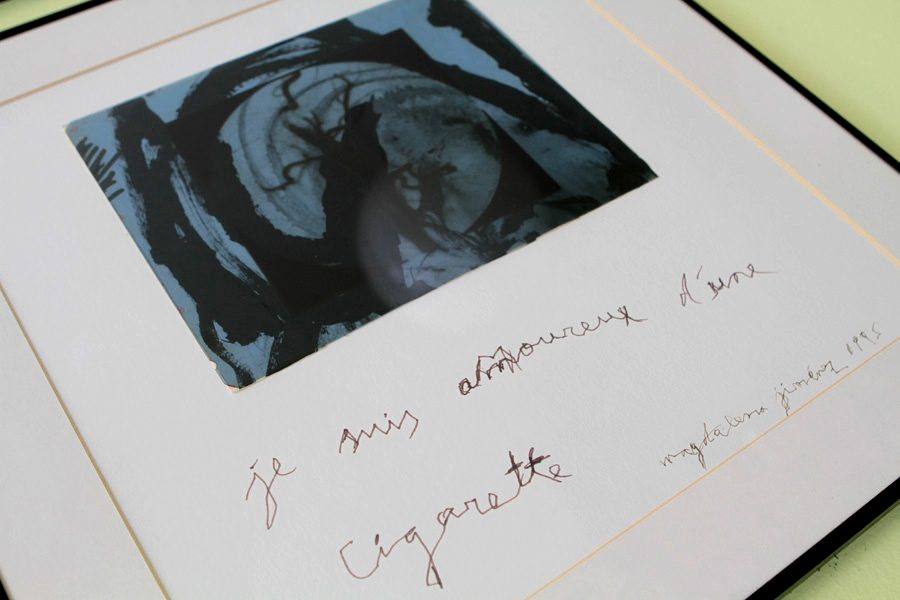 je suis amoureux d'une
cigarette
magdalena jiménez 1995